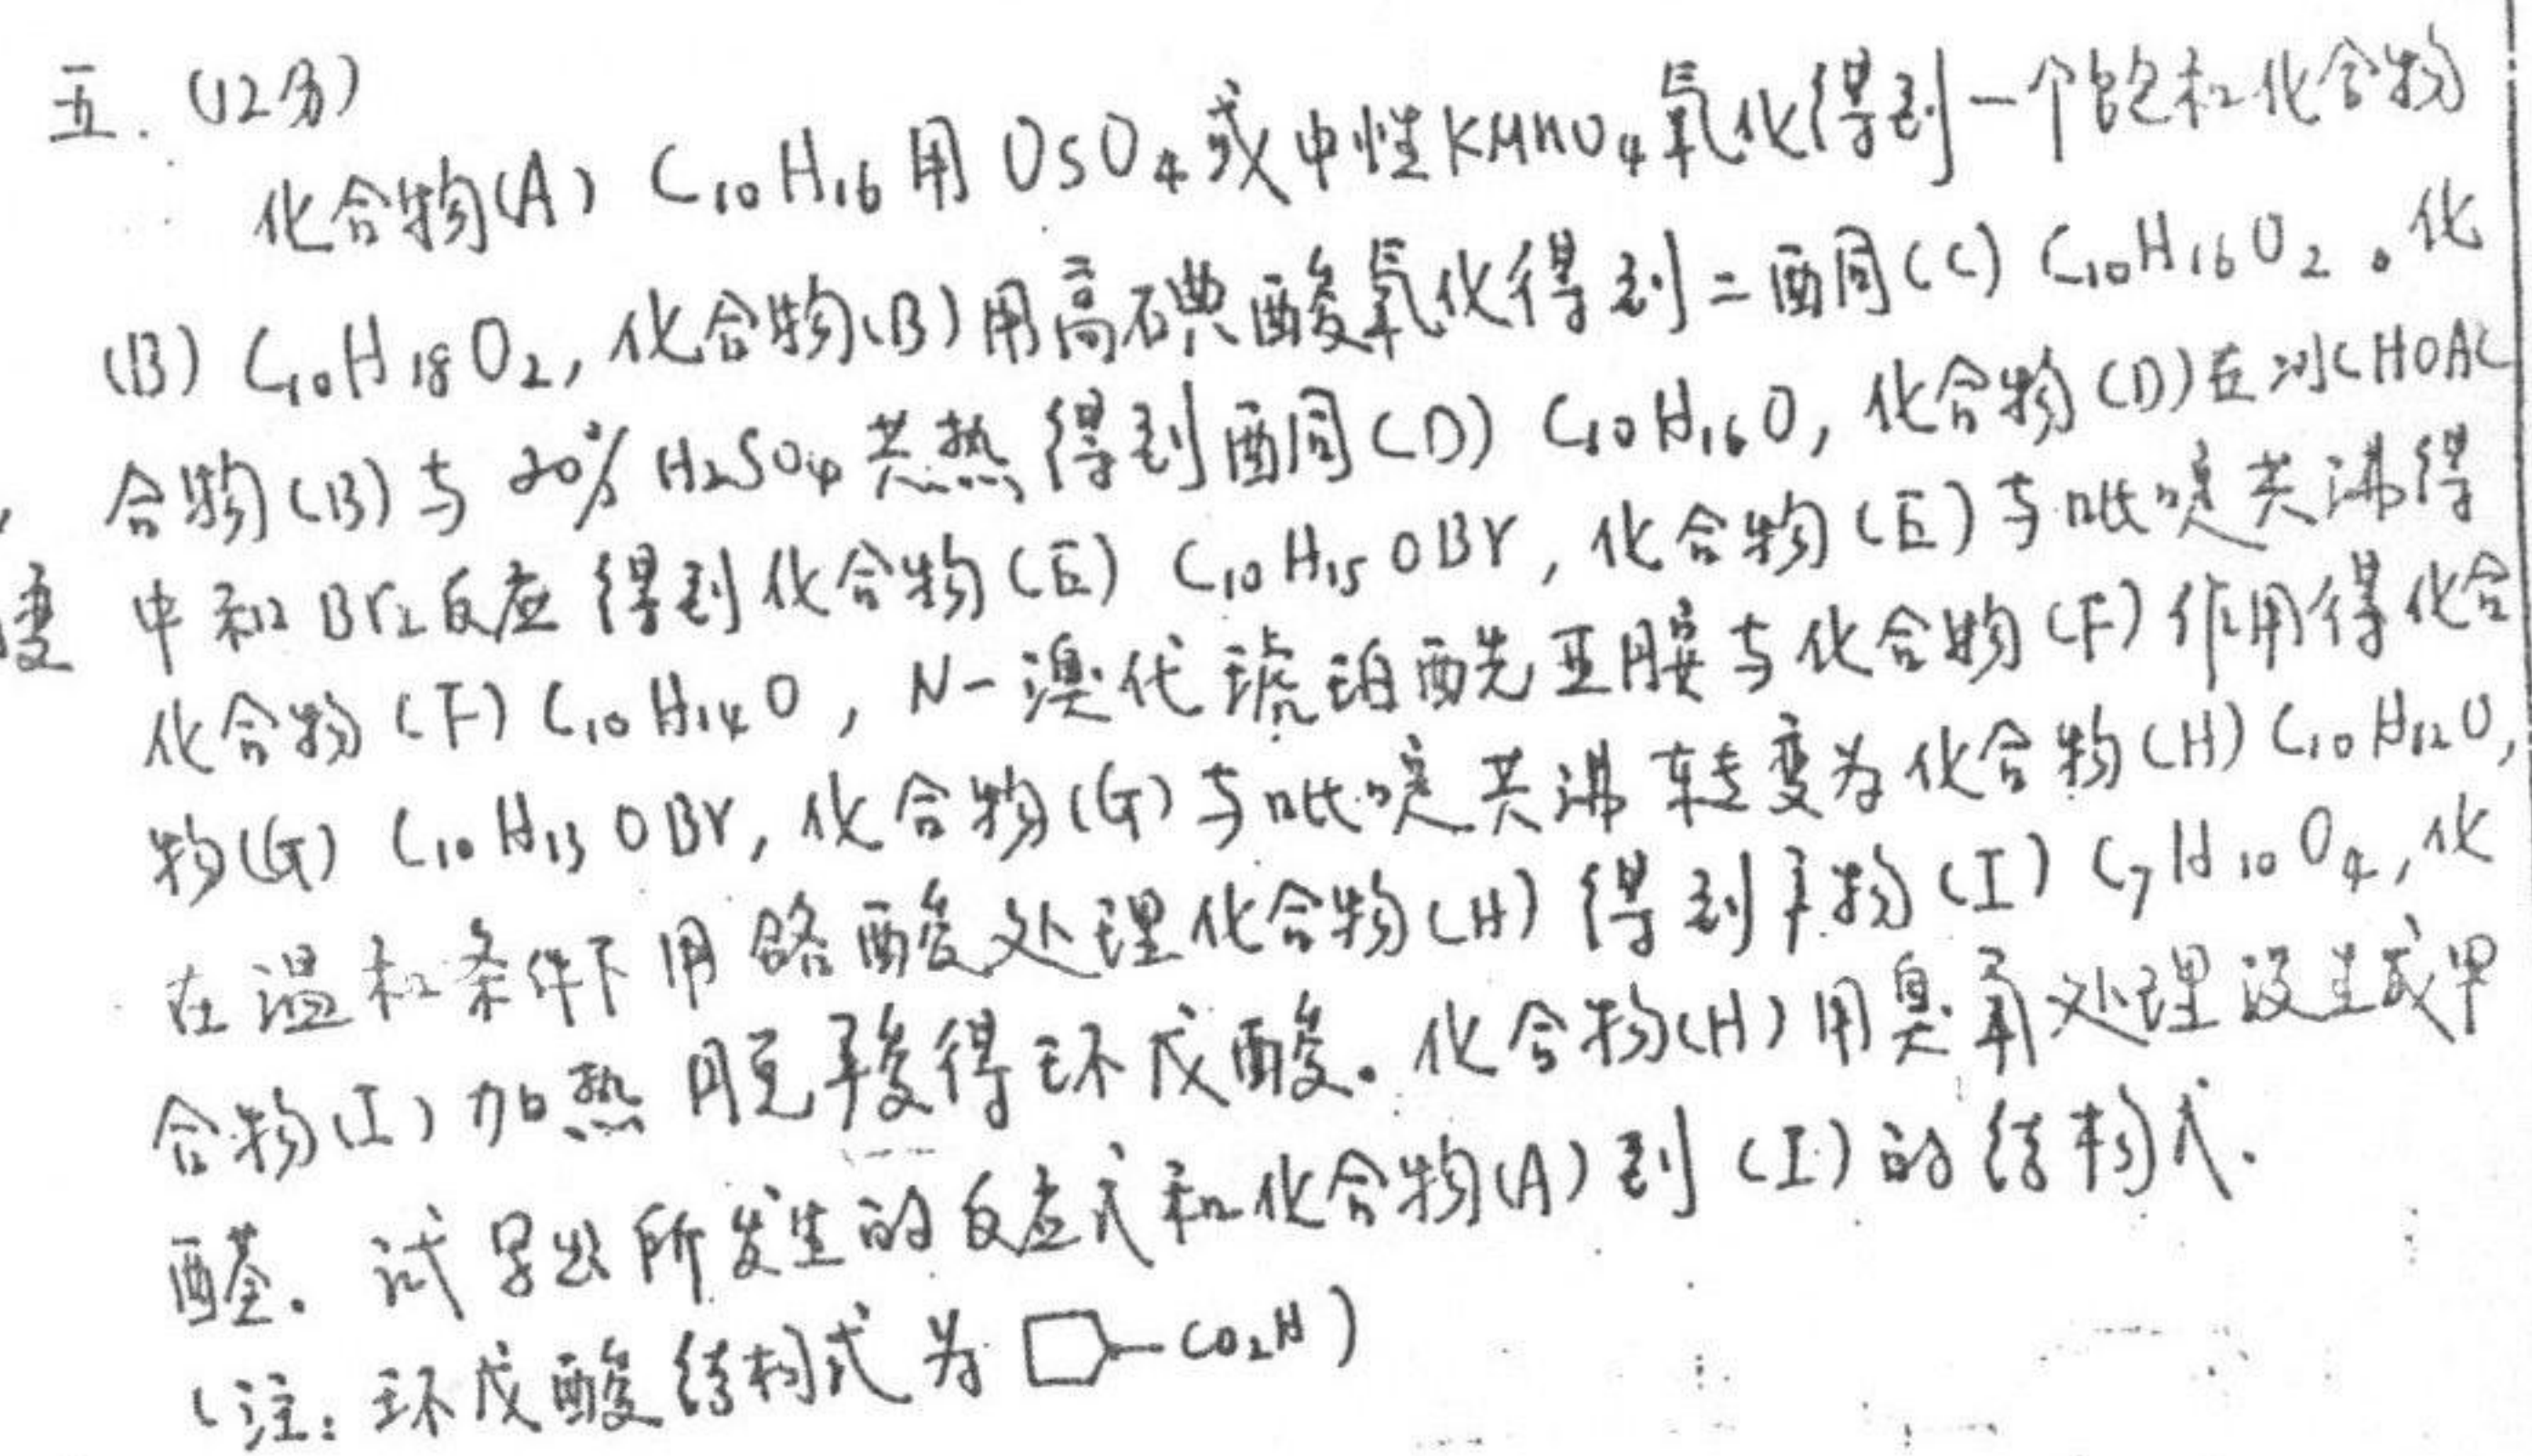 五.(12分)
化合物(A) C₁₀H₁₆用OsO₄或中性KMnO₄氧化得到一个饱和化合物
(B) C₁₀H₁₈O₂,化合物(B)用高碘酸氧化得到二酮(C) C₁₀H₁₆O₂。化
合物(B)与20% H₂SO₄共热得到酮(D) C₁₀H₁₆O,化合物(D)在冰CHOAC
中和Br₂反应得到化合物(E) C₁₀H₁₅OBr,化合物(E)与吡啶共沸得
变
化合物(F) C₁₀H₁₄O,N-溴代琥珀酰亚胺与化合物(F)作用得化合
物(G) C₁₀H₁₃OBr,化合物(G)与吡啶共沸转变为化合物(H) C₁₀H₁₂O,
在温和条件下用铬酸处理化合物(H)得到产物(I) C₇H₁₀O₄,化
合物(I)加热脱羧得环戊酸。化合物(H)用臭氧处理没生成甲
醛。试写出所发生的反应式和化合物(A)到(I)的结构式.
(注:环戊酸结构式为 -CO₂H)